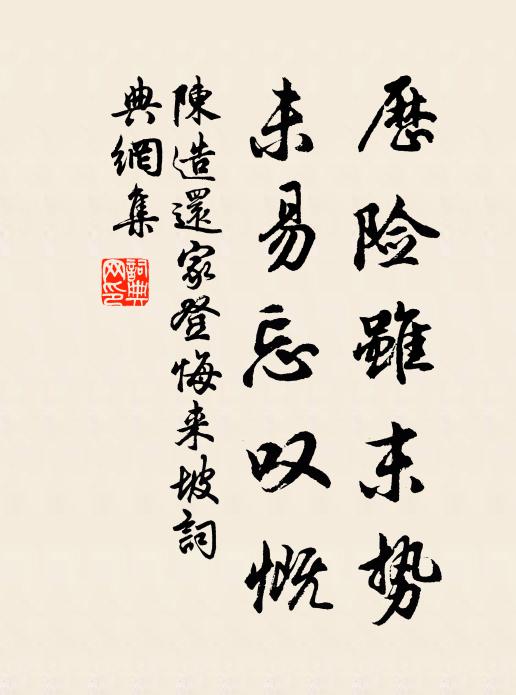 歷险雖末势
未易忘叹慨
陳造還家登悔来坡詞
典網集
詞典
网印